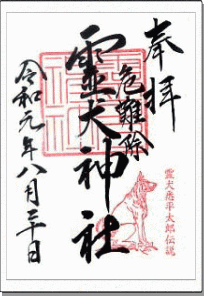 奉拝
危難除
靈犬神社
令和元年八月三十日
霊犬悉平太郎伝説